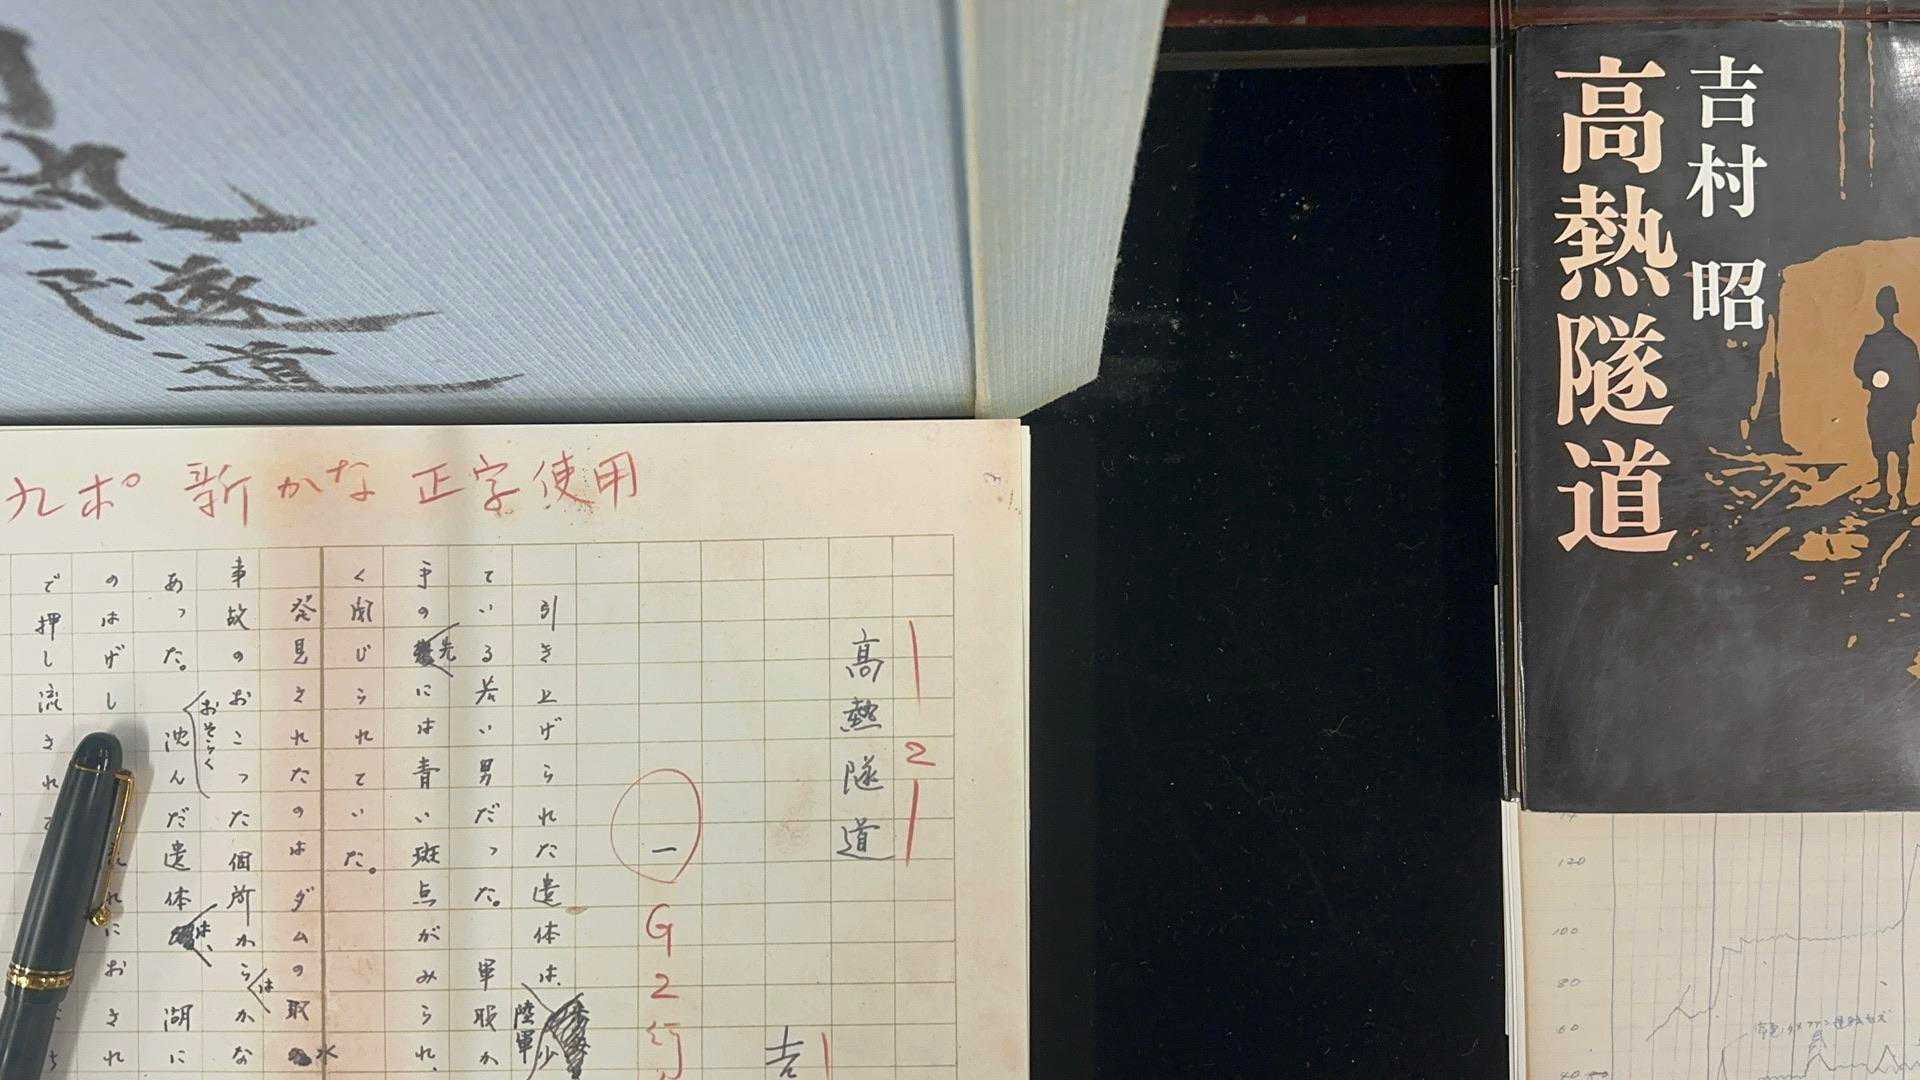 熱隧道
吉村 昭
高熱隧道
九ポ 新かな 正字使用
2
高熱隧道
吉
一
G2行
引き上げられた遺体は、陸軍少
ている若い男だった。軍服か
手の先には青い斑点がみられ、
く閉じられていた。
発見されたのはダムの取水
事故のおこった個所からは、かな
あった。おそらく沈んだ遺体は、湖に
のはげし
れにおされ
で押し流され
120
100
80
60
40